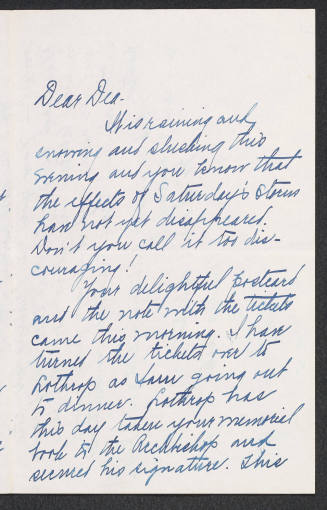 Dear Dea-
It is raining and
snowing and slushing this
evening and you know that
the effects of Saturday's storm
have not yet disappeared.
Don't you call it too dis-
couraging!
Your delightful postcard
and the note with the tickets
came this morning. I have
turned the tickets over to
Lothrop as I am going out
to dinner. Lothrop has
this day taken your memorial
book to the Archbishop and
secured his signature. This